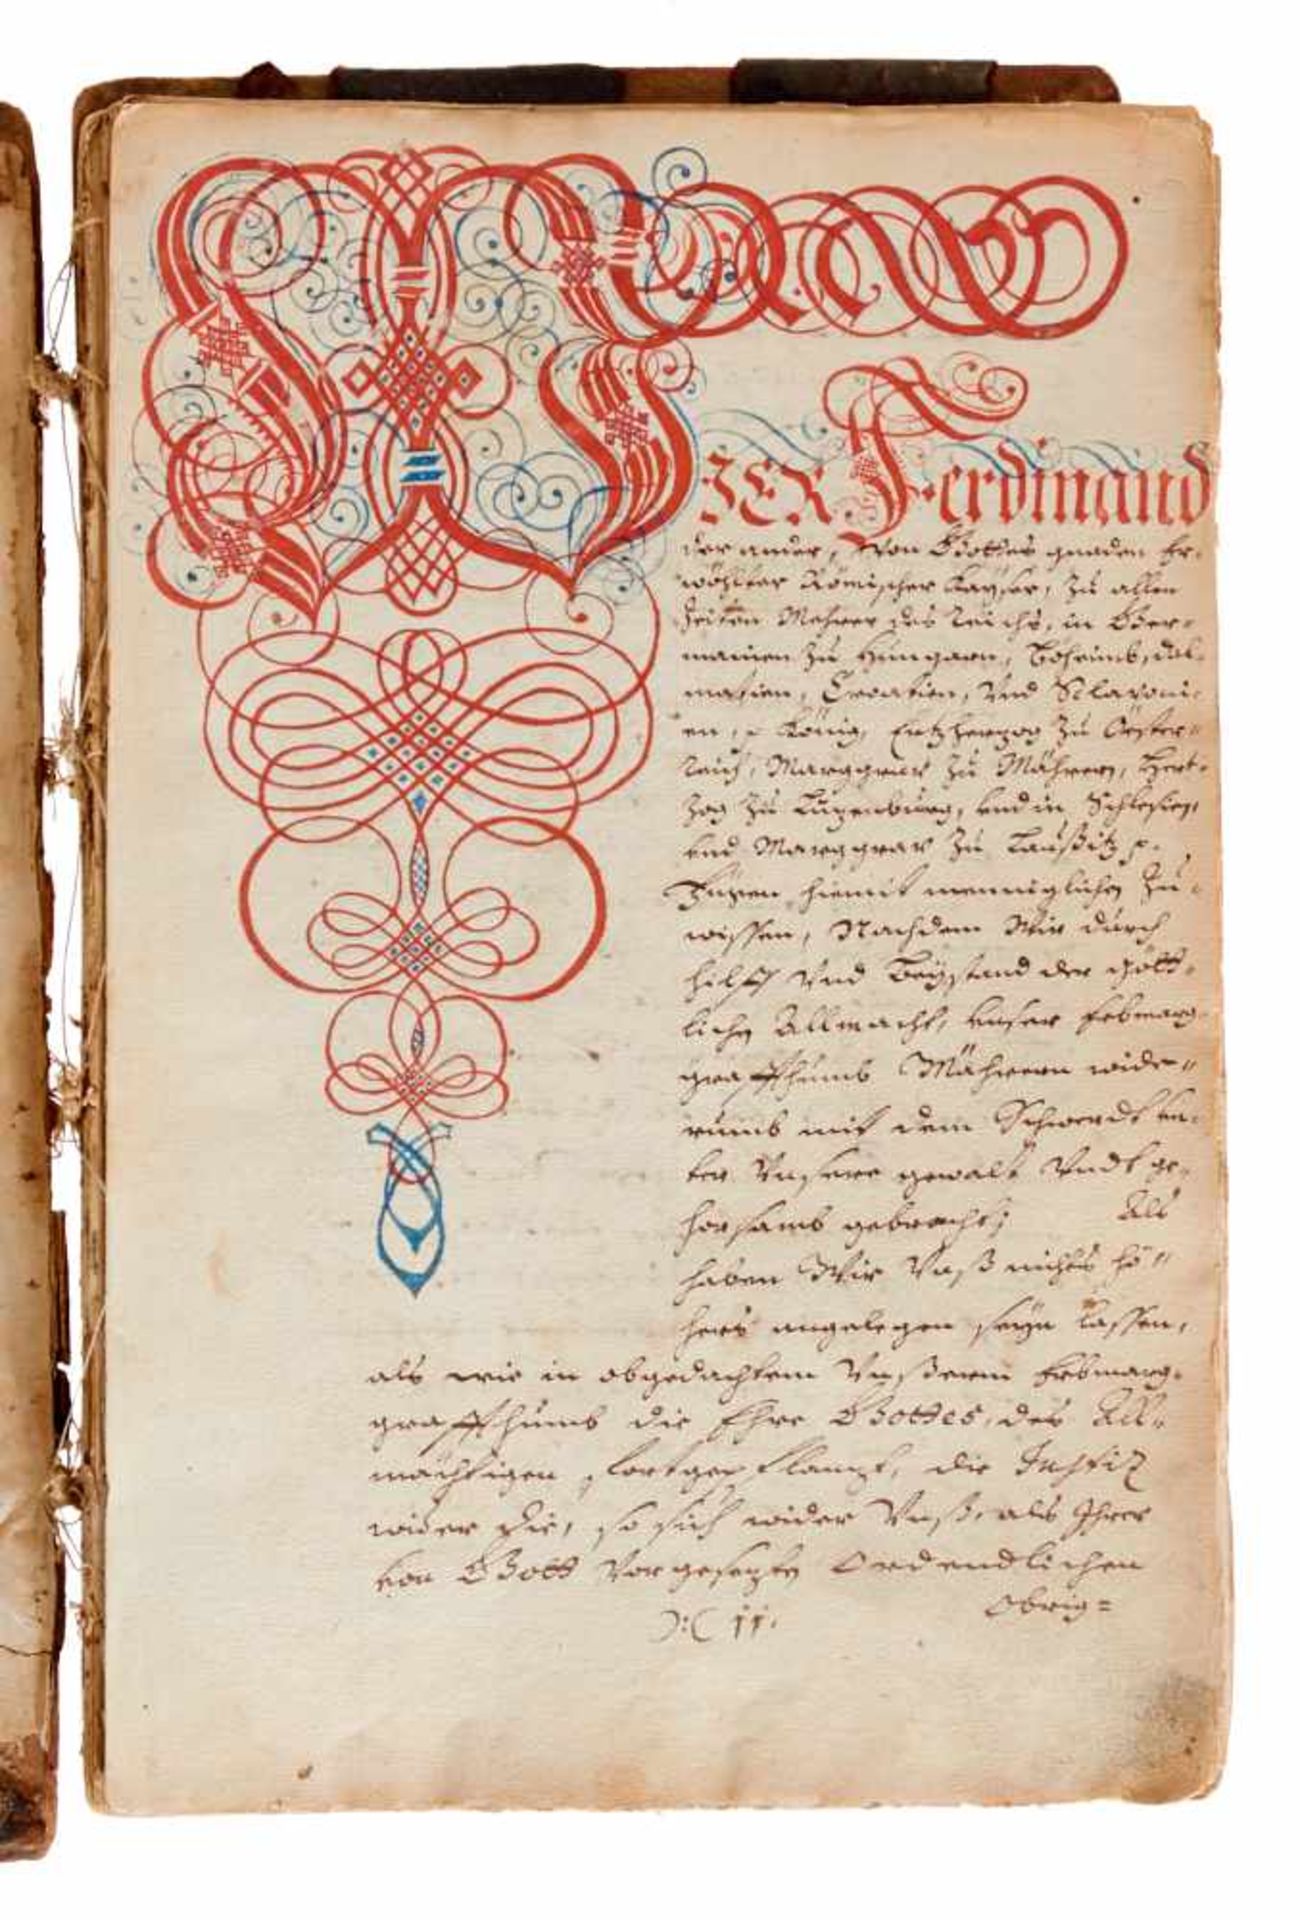 WJER Ferdinand
der ander, Von Gottes gnaden Er-
wöhlter Römischer Kayser, zu allen
Zeiten Mehrer des Reichs, in Ger-
manien zu Hungarn, Böheimb, Dal-
matien, Croatien, Vnd Sclavoni-
en, König, Ertzhertzog zu Öster-
reich, Marggrav zu Mährern, Hert-
zog zu Lutzenburg, vnd in Schlesien,
vnd Marggrav zu Laußitz
Fügen hiemit menniglichen zu
wissen, Nachdem Wir durch
hilff Vnd Beystand der gött-
lichen Allmacht, vnser Erbmarg-
graffthumb Mährern wide-
rumb mit dem Schwerdt vn-
ter Vnsere gewalt Vndt ge-
horsamb gebracht; Als
haben Wir Vnß nichts hö-
hers angelegen seyn lassen,
als wie in obgedachtem Vnßerem Erbmarg-
graffthumb die Ehre Gottes, des All-
mächtigen, fortgepflantzt, die Justitz
wider die, so sich wider Vnß, als Ihrer
von Gott Vorgesetzten Ordendlichen
):( ij. Obrig=